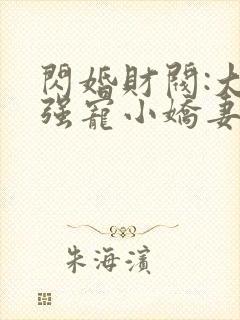 閃婚財閥:大
强寵小嬌妻
朱海濱